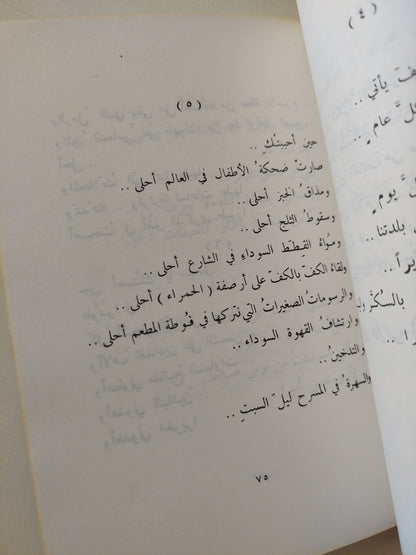 (٤)
يأتي ..
كلَّ عامٍ ..
يومٍ
بلدتنا ..
بالسكّر
(٥)
حين أحببتكِ ..
صارتْ ضحكةُ الأطفال في العالم أحلى ..
ومذاقُ الخبز أحلى ..
وسقوطُ الثلج أحلى ..
ومواءُ القِططِ السوداءِ في الشارع أحلى ..
ولقاءُ الكفّ بالكفّ على أرصفة (الحمراء) أحلى ..
والرسوماتُ الصغيراتُ التي نتركها في فوطة المطعم أحلى ..
وارتشافُ القهوة السوداء ..
والتدخينُ ..
والسهرةُ في المسرح ليلَ السبتِ ..
٧٥